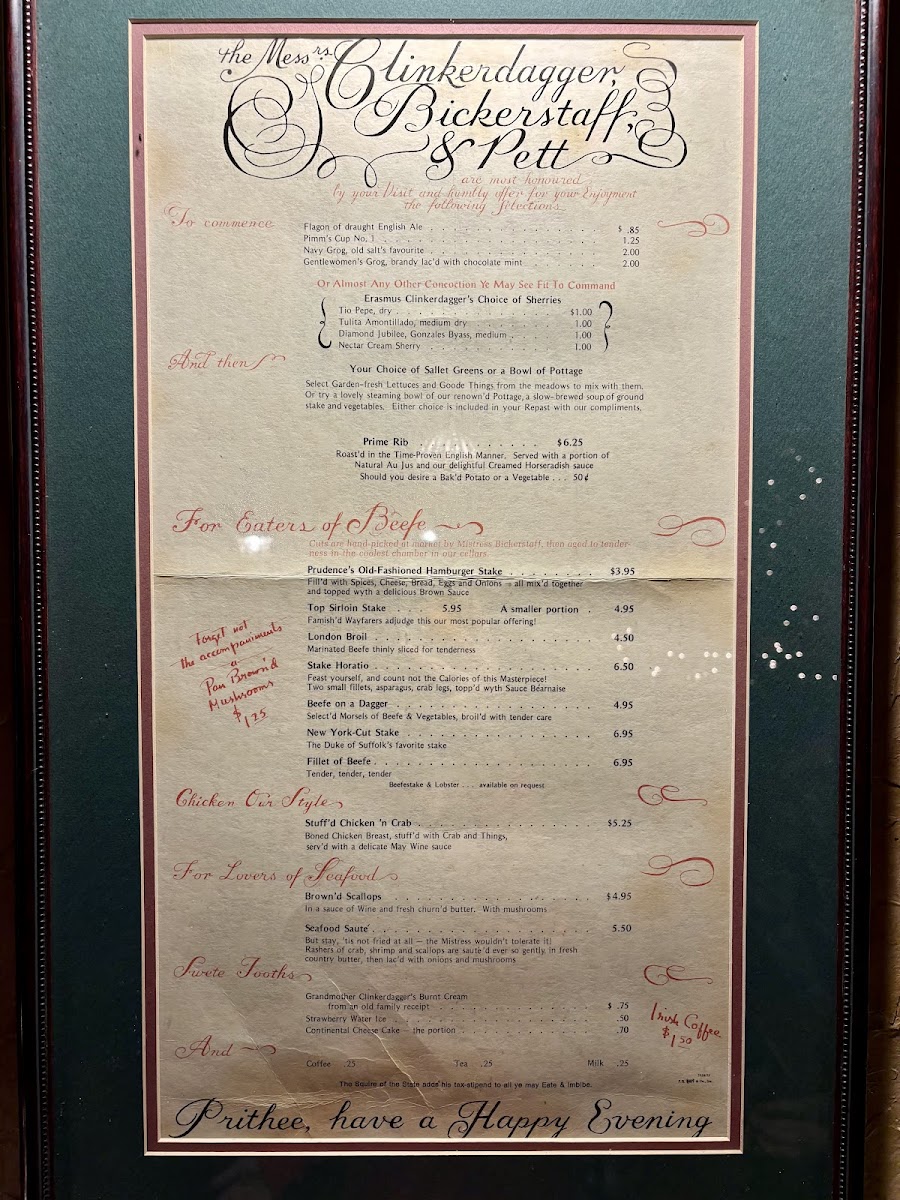 the Messrs. Clinkerdagger,
Bickerstaff,
& Pett
are most honoured
by your Visit and humbly offer for your Enjoyment
the following Selections
To commence
Flagon of draught English Ale . . . $ .85
Pimm's Cup No. 1 . . . 1.25
Navy Grog, old salt's favourite . . . 2.00
Gentlewomen's Grog, brandy lac'd with chocolate mint . . . 2.00
Or Almost Any Other Concoction Ye May See Fit To Command
Erasmus Clinkerdagger's Choice of Sherries
Tio Pepe, dry . . . $1.00
Tulita Amontillado, medium dry . . . 1.00
Diamond Jubilee, Gonzales Byass, medium . . . 1.00
Nectar Cream Sherry . . . 1.00
And then
Your Choice of Sallet Greens or a Bowl of Pottage
Select Garden-fresh Lettuces and Goode Things from the meadows to mix with them.
Or try a lovely steaming bowl of our renown'd Pottage, a slow-brewed soup of ground
stake and vegetables. Either choice is included in your Repast with our compliments.
Prime Rib . . . $6.25
Roast'd in the Time-Proven English Manner. Served with a portion of
Natural Au Jus and our delightful Creamed Horseradish sauce
Should you desire a Bak'd Potato or a Vegetable . . . 50¢
For Eaters of Beefe
Cuts are hand-picked at market by Mistress Bickerstaff, then aged to tender-
ness in the coolest chamber in our cellars.
Prudence's Old-Fashioned Hamburger Stake . . . $3.95
Fill'd with Spices, Cheese, Bread, Eggs and Onions – all mix'd together
and topped wyth a delicious Brown Sauce
Top Sirloin Stake . . . 5.95 A smaller portion . 4.95
Famish'd Wayfarers adjudge this our most popular offering!
London Broil . . . 4.50
Marinated Beefe thinly sliced for tenderness
Stake Horatio . . . 6.50
Feast yourself, and count not the Calories of this Masterpiece!
Two small fillets, asparagus, crab legs, topp'd wyth Sauce Bearnaise
Beefe on a Dagger . . . 4.95
Select'd Morsels of Beefe & Vegetables, broil'd with tender care
New York-Cut Stake . . . 6.95
The Duke of Suffolk's favorite stake
Fillet of Beefe . . . 6.95
Tender, tender, tender
Beefestake & Lobster . . . available on request
Forget not
the accompaniments
Pan Brown'd
Mushrooms
$1.25
Chicken Our Style
Stuff'd Chicken 'n Crab . . . $5.25
Boned Chicken Breast, stuff'd with Crab and Things,
serv'd with a delicate May Wine sauce
For Lovers of Seafood
Brown'd Scallops . . . $4.95
In a sauce of Wine and fresh churn'd butter. With mushrooms
Seafood Saute' . . . 5.50
But stay, 'tis not fried at all — the Mistress wouldn't tolerate it!
Rashers of crab, shrimp and scallops are saute'd ever so gently in fresh
country butter, then lac'd with onions and mushrooms
Swete Tooths
Grandmother Clinkerdagger's Burnt Cream
from an old family receipt . . . $ .75
Strawberry Water Ice . . . .50
Continental Cheese Cake — the portion . . . .70
Irish Coffee
$1.50
And
Coffee .25 Tea .25 Milk .25
The Squire of the State adds his tax-stipend to all ye may Eate & Imbibe.
Prithee, have a Happy Evening